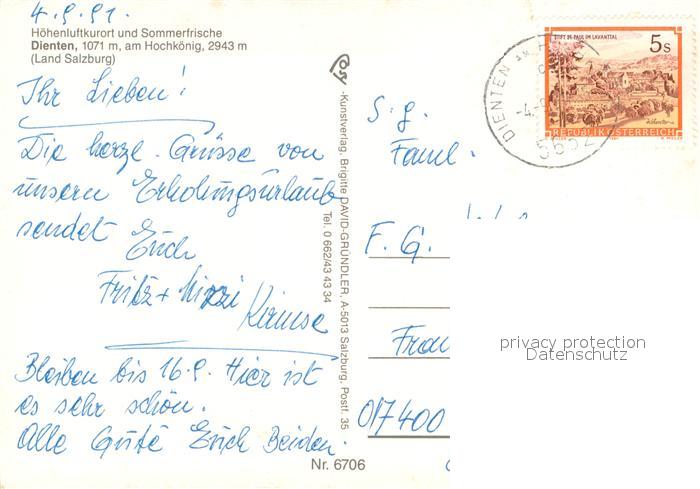 4.9.91.
Höhenluftkurort und Sommerfrische
Dienten, 1071 m, am Hochkönig, 2943 m
(Land Salzburg)
Ihr Lieben!
Die herzl. Grüsse von
unserem Erholungsurlaub
sendet Euch
Fritz + Mizzi
Bleiben bis 16.9. Hier ist
es sehr schön.
Alle Gute Euch Beiden.
Cosy -Kunstverlag, Brigitte DAVID-GRÜNDLER, A-5013 Salzburg, Postf. 35
Tel. 0 662/43 43 34
Nr. 6706
STIFT ST. PAUL IM LAVANTTAL
5s
REPUBLIK ÖSTERREICH
DIENTEN AM H
-4.-9
5652
S. g.
Faml.
F. G.
Frau
017400
privacy protection
Datenschutz